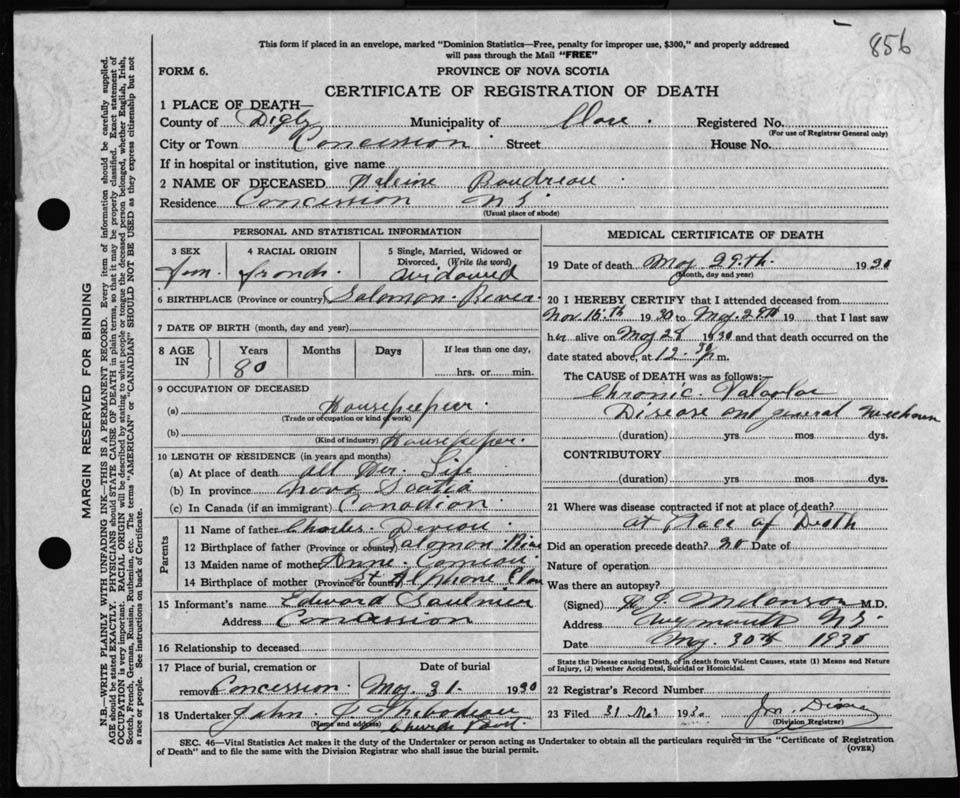 856
This form if placed in an envelope, marked "Dominion Statistics—Free, penalty for improper use, $300," and properly addressed
will pass through the Mail "FREE"
FORM 6. PROVINCE OF NOVA SCOTIA
CERTIFICATE OF REGISTRATION OF DEATH
MARGIN RESERVED FOR BINDING
N.B.—WRITE PLAINLY WITH UNFADING INK—THIS IS A PERMANENT RECORD. Every item of information should be carefully supplied.
AGE should be stated EXACTLY. PHYSICIANS should STATE CAUSE OF DEATH in plain terms, so that it may be properly classified. Exact statement of
OCCUPATION is very important. RACIAL ORIGIN will be described by stating to what people or tongue the deceased person belonged, whether English, Irish,
Scotch, French, German, Russian, Ruthenian, etc. The terms "AMERICAN" or "CANADIAN" SHOULD NOT BE USED as they express citizenship but not
a race or people. See instructions on back of Certificate.
1 PLACE OF DEATH—
County of Digby Municipality of Clare. Registered No.
(For use of Registrar General only)
City or Town Concession Street House No.
If in hospital or institution, give name
2 NAME OF DECEASED Boudreau
Residence Concession N S
(Usual place of abode)
PERSONAL AND STATISTICAL INFORMATION
3 SEX 4 RACIAL ORIGIN 5 Single, Married, Widowed or
Divorced. (Write the word)
Fem. French. Widowed
6 BIRTHPLACE (Province or country) Salomon River.
7 DATE OF BIRTH (month, day and year)
8 AGE IN Years Months Days If less than one day,
80 hrs. or min.
9 OCCUPATION OF DECEASED
(a) Housekeeper.
(Trade or occupation or kind of work)
(b) Housekeeper.
(Kind of industry)
10 LENGTH OF RESIDENCE (in years and months)
(a) At place of death all Her Life
(b) In province Nova Scotia
(c) In Canada (if an immigrant) Canadian
Parents
11 Name of father Charles
12 Birthplace of father (Province or country) Salomon River
13 Maiden name of mother Anne Comeau
14 Birthplace of mother (Province or country) St Alphone Clare
15 Informant's name Edward Saulnier
Address Concession
16 Relationship to deceased
17 Place of burial, cremation or Date of burial
removal Concession. May 31. 1930
18 Undertaker John Thibodeau
(Name and address) Church Point
MEDICAL CERTIFICATE OF DEATH
19 Date of death May 29.th. 1930
(Month, day and year)
20 I HEREBY CERTIFY that I attended deceased from
Nov. 16.th 1930 to May. 29th 19 that I last saw
her alive on May 28 1930 and that death occurred on the
date stated above, at 12.30 p m.
The CAUSE of DEATH was as follows:—
Chronic Valvular
Disease and general
(duration) yrs mos dys.
CONTRIBUTORY
(duration) yrs mos dys.
21 Where was disease contracted if not at place of death?
at Place of Death
Did an operation precede death? no Date of
Nature of operation
Was there an autopsy?
(Signed) Melanson M.D.
Address Weymouth N S
Date May. 30th 1930
State the Disease causing Death, or in death from Violent Causes, state (1) Means and Nature
of Injury, (2) whether Accidental, Suicidal or Homicidal.
22 Registrar's Record Number
23 Filed 31 May 1930
(Division Registrar)
SEC. 46—Vital Statistics Act makes it the duty of the Undertaker or person acting as Undertaker to obtain all the particulars required in the "Certificate of Registration
of Death" and to file the same with the Division Registrar who shall issue the burial permit. (OVER)